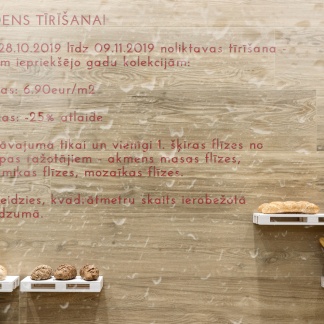 DENS TĪRĪŠANA!
28.10.2019 līdz 09.11.2019 noliktavas tīrīšana -
m iepriekšējo gadu kolekcijām:
as: 6.90eur/m2
as: -25% atlaide
āvājumā tikai un vienīgi 1. šķiras flīzes no
pas ražotājiem - akmens masas flīzes,
mikas flīzes, mozaīkas flīzes.
eidzies, kvadrātmetru skaits ierobežotā
dzumā.